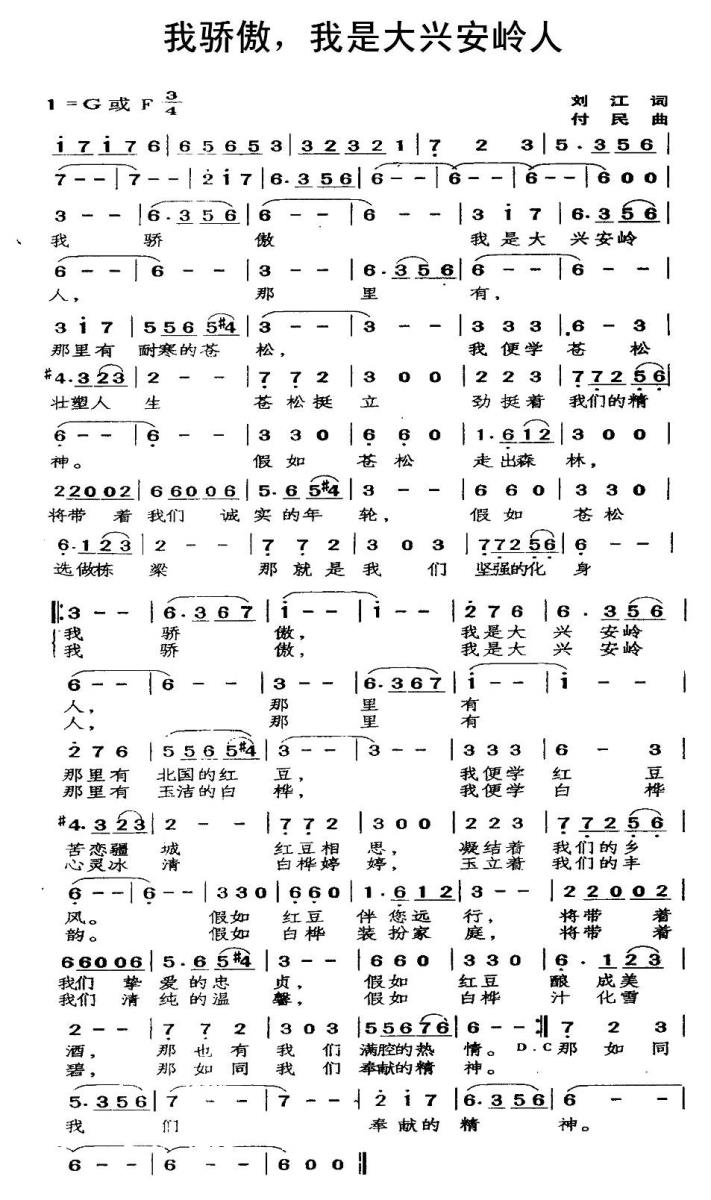 我骄傲，我是大兴安岭人
1=G或F 3/4
刘 江 词
付 民 曲
i 7 i 7 6 | 6 5 6 5 3 | 3 2 3 2 1 | 7 2 3 | 5· 3 5 6 |
7 - - | 7 - - | 2 i 7 | 6· 3 5 6 | 6 - - | 6 - - | 6 - - | 6 0 0 |
3 - - | 6· 3 5 6 | 6 - - | 6 - - | 3 i 7 | 6· 3 5 6 |
我 骄 傲 我是大 兴安岭
6 - - | 6 - - | 3 - - | 6· 3 5 6 | 6 - - | 6 - - |
人， 那 里 有，
3 i 7 | 5 5 6 5 #4 | 3 - - | 3 - - | 3 3 3 | 6 - 3 |
那里有 耐寒的苍 松， 我便学 苍 松
#4· 3 2 3 | 2 - - | 7 7 2 | 3 0 0 | 2 2 3 | 7 7 2 5 6 |
壮塑人 生 苍松挺 立 劲挺着 我们的精
6 - - | 6 - - | 3 3 0 | 6 6 0 | 1· 6 1 2 | 3 0 0 |
神。 假如 苍松 走出森 林，
2 2 0 0 2 | 6 6 0 0 6 | 5· 6 5 #4 | 3 - - | 6 6 0 | 3 3 0 |
将带 着 我们 诚 实的年 轮， 假如 苍松
6· 1 2 3 | 2 - - | 7 7 2 | 3 0 3 | 7 7 2 5 6 | 6 - - |
选做栋 梁 那就是 我 们 坚强的化 身
‖: 3 - - | 6· 3 6 7 | i - - | i - - | 2 7 6 | 6· 3 5 6 |
我 骄 傲， 我是大 兴 安岭
我 骄 傲， 我是大 兴 安岭
6 - - | 6 - - | 3 - - | 6· 3 6 7 | i - - | i - - |
人， 那 里 有
人， 那 里 有
2 7 6 | 5 5 6 5 #4 | 3 - - | 3 - - | 3 3 3 | 6 - 3 |
那里有 北国的红 豆， 我便学 红 豆
那里有 玉洁的白 桦， 我便学 白 桦
#4· 3 2 3 | 2 - - | 7 7 2 | 3 0 0 | 2 2 3 | 7 7 2 5 6 |
苦恋疆 城 红豆相 思， 凝结着 我们的乡
心灵冰 清 白桦婷 婷， 玉立着 我们的丰
6 - - | 6 - - | 3 3 0 | 6 6 0 | 1· 6 1 2 | 3 - - | 2 2 0 0 2 |
风。 假如 红豆 伴您远 行， 将带 着
韵。 假如 白桦 装扮家 庭， 将带 着
6 6 0 0 6 | 5· 6 5 #4 | 3 - - | 6 6 0 | 3 3 0 | 6· 1 2 3 |
我们 挚 爱的忠 贞， 假如 红豆 酿 成美
我们 清 纯的温 馨， 假如 白桦 汁 化雪
2 - - | 7 7 2 | 3 0 3 | 5 5 6 7 6 | 6 - - :‖ 7 2 3 |
酒， 那也有 我 们 满腔的热 情。 D.C 那如同
碧， 那如同 我 们 奉献的精 神。
5· 3 5 6 | 7 - - | 7 - - | 2 i 7 | 6· 3 5 6 | 6 - - |
我 们 奉献的 精 神。
6 - - | 6 - - | 6 0 0 ‖